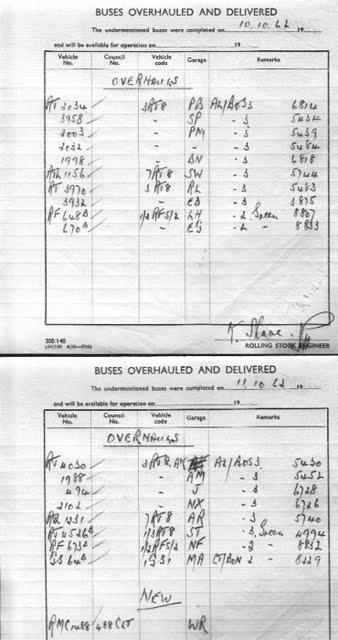 BUSES OVERHAULED AND DELIVERED
The undermentioned buses were completed on 10.10.62 19
and will be available for operation on 19
Vehicle No. Council No. Vehicle code Garage Remarks
OVERHAULS
RT 2034 3RT8 PB A2/BOS 3 6814
3958 " SP " 3 5434
2003 " PM " 3 5439
2032 " - " 3 5484
1998 " BN " 3 6818
RTL 1156 7RT8 SW " 3 5744
RT 3970 3RT8 RL " 3 5483
3932 " ED " 3 3875
RF 648 B 1/2RF5/2 LH " 2 Green 8807
670 B " EG " 2 " 8833
308/140
ROLLING STOCK ENGINEER
BUSES OVERHAULED AND DELIVERED
The undermentioned buses were completed on 11.10.62 19
and will be available for operation on 19
Vehicle No. Council No. Vehicle code Garage Remarks
OVERHAULS
RT 4030 3RT8 AK A2/BOS 3 5430
1988 " AM " 3 5452
494 " J " 3 6728
2102 " NX " 3 6726
7RT8 AR " 3 5740
RT 4526 B 1/3RT8 ST " 3 Green 4994
RF 673 B 1/2RF5/2 NF " 2 " 8832
GS 64 B 1GS1 MA CT/BON 2 " 8229
NEW
RMC 1488 488 CLT WR